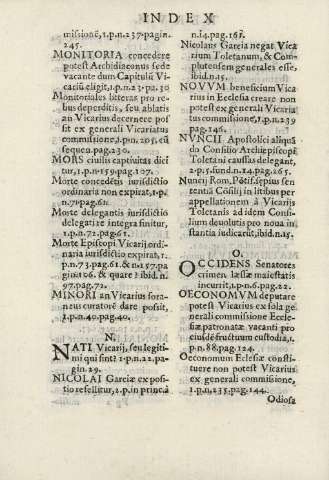 INDEX
missione, 1.p.n.237.pagin.
245.
MONITORIA concedere
potest Archidiaconus sede
vacante dum Capitulũ Vi-
cariũ eligit, 1.p.n.23.pa.30
Monitoriales litteras pro re-
bus deperditis, seu ablatis
an Vicarius decernere pos-
sit ex generali Vicariatus
commissione, 1.p.nu.205.cũ
sequen.pag.230.
MORS civilis captivitas dici-
tur, 1.p.n.159.pag.107.
Morte concedẽtis iurisdictio
ordinaria non expirat, 1.p.
n.71.pag.61.
Morte delegantis iurisdictio
delegati re integra finitur,
1.p.n.72.pag.61.
Morte Episcopi Vicarij ordi-
naria iurisdictio expirat, 1.
p.n.73.pag.61.& n.157.pa
gin.106. & quare? ibid.n.
97.pag.72.
MINORI an Vicarius fora-
neus curatorẽ dare possit,
1.p.n.40.pag.40.
N.
NATI Vicarij, seu legiti-
mi qui sint? 1.p.n.22.pa-
gin.29.
NICOLAI Garciæ ex posi-
tio refellitur, 2.p.in princ.à
n.14.pag.167.
Nicolaus Garcia negat Vica
rium Toletanum, & Com-
plutensem generales esse,
ibid.n.15.
NOVVM beneficium Vica-
rius in Ecclesia creare non
potest ex generali Vicariat
us commissione, 1.p.n.239
pag.146.
NVNCII Apostolici aliquã
do Consilio Archiepiscopi
Toletani caussas delegant,
2.p.5.fund.n.14.pag.265.
Nuncij Rom. Põtif. sepius sen
tentiã Cõsilij in litibus per
appellationem à Vicarijs
Toletanis ad idem Consi-
lium devolutis pro nova in
stantia iudicarũt, ibid.n.15.
O.
OCCIDENS Senatores
crimen læsæ maiestatis
incurrit, 1.p.n.6.pag.22.
OECONOMVM deputare
potest Vicarius ex sola ge-
nerali commissione Eccle-
siæ patronatæ vacanti pro
eiusdẽ fructuum custodia, 1.
p.n.88.pag.124.
Oeconomum Eclesiæ consti-
tuere non potest Vicarius
ex generali commissione,
1.p.n.235.pag.144.
Odiosa